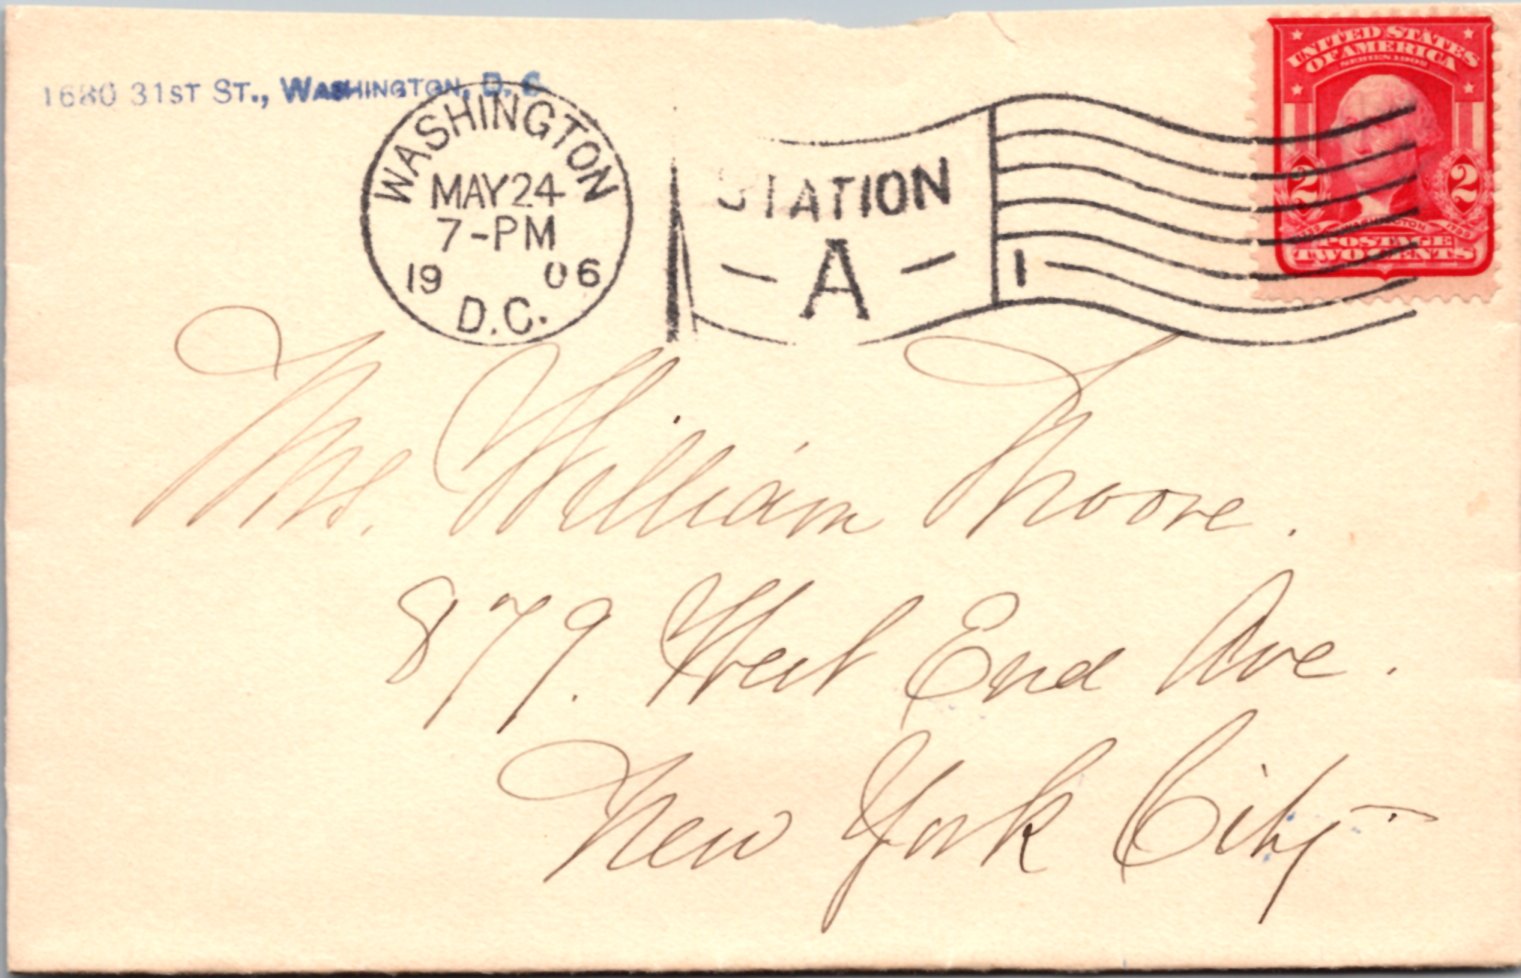 1680 31ST ST., WASHINGTON, D. C
WASHINGTON
MAY 24
7-PM
19 06
D.C.
STATION
- A -
1
UNITED STATES
OF AMERICA
SERIES 1902
2 2
WASHINGTON
POSTAGE
TWO CENTS
Mrs. William Moore.
879. West End Ave.
New York City